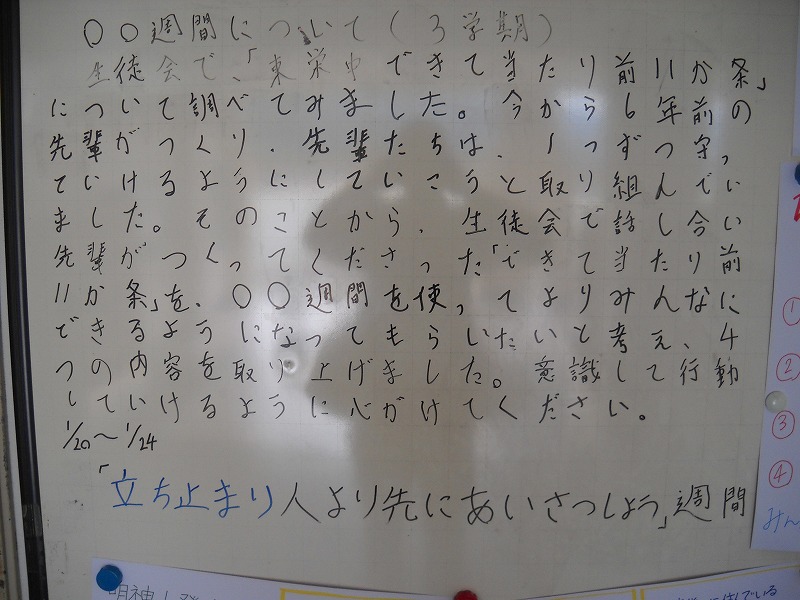 〇〇週間について(3学期)
生徒会で、「東栄中できて当たり前11か条」
について調べてみました。今から6年前の
先輩がつくり、先輩たちは、1つずつ守っ
ていけるようにしていこうと取り組んでい
ました。そのことから、生徒会で話し合い
先輩がつくってくださった「できて当たり前
11か条」を、〇〇週間を使ってよりみんなに
できるようになってもらいたいと考え、4
つの内容を取り上げました。意識して行動
していけるように心がけてください。
1/20～1/24
「立ち止まり人より先にあいさつしよう」週間
①
②
③
④
みん